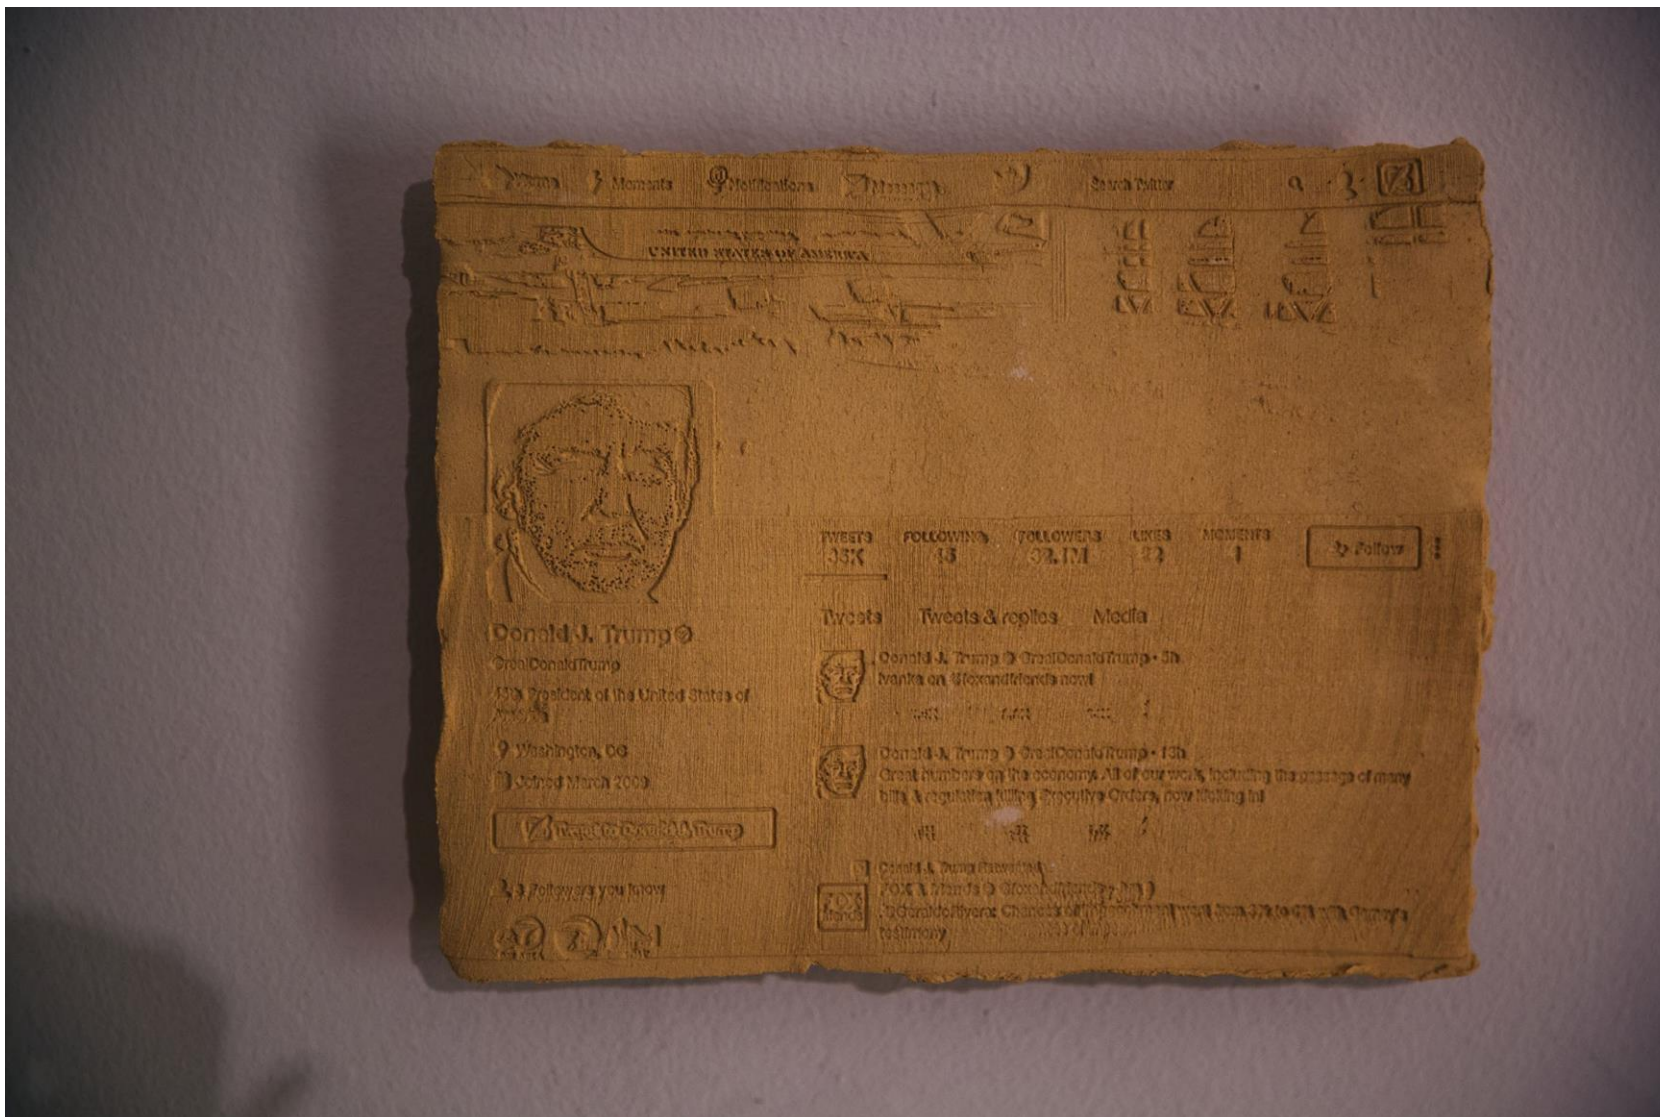 Home Moments Notifications Messages Search Twitter
UNITED STATES OF AMERICA
TWEETS FOLLOWING FOLLOWERS LIKES MOMENTS
35K 45 32.1M 22 1 Follow
Tweets Tweets & replies Media
Donald J. Trump
@realDonaldTrump
45th President of the United States of
Washington, DC
Joined March 2009
Tweet to Donald J. Trump
3 Followers you know
Donald J. Trump @realDonaldTrump • 5h
Ivanka on @foxandfriends now!
Donald J. Trump @realDonaldTrump • 13h
Great numbers on the economy. All of our work, including the passage of many
bills & regulation killing Executive Orders, now kicking in!
Donald J. Trump Retweeted
FOX & friends @foxandfriends
FOX
friends
.@GeraldoRivera: Chances of impeachment went from 3% to 0% with Comey's
testimony